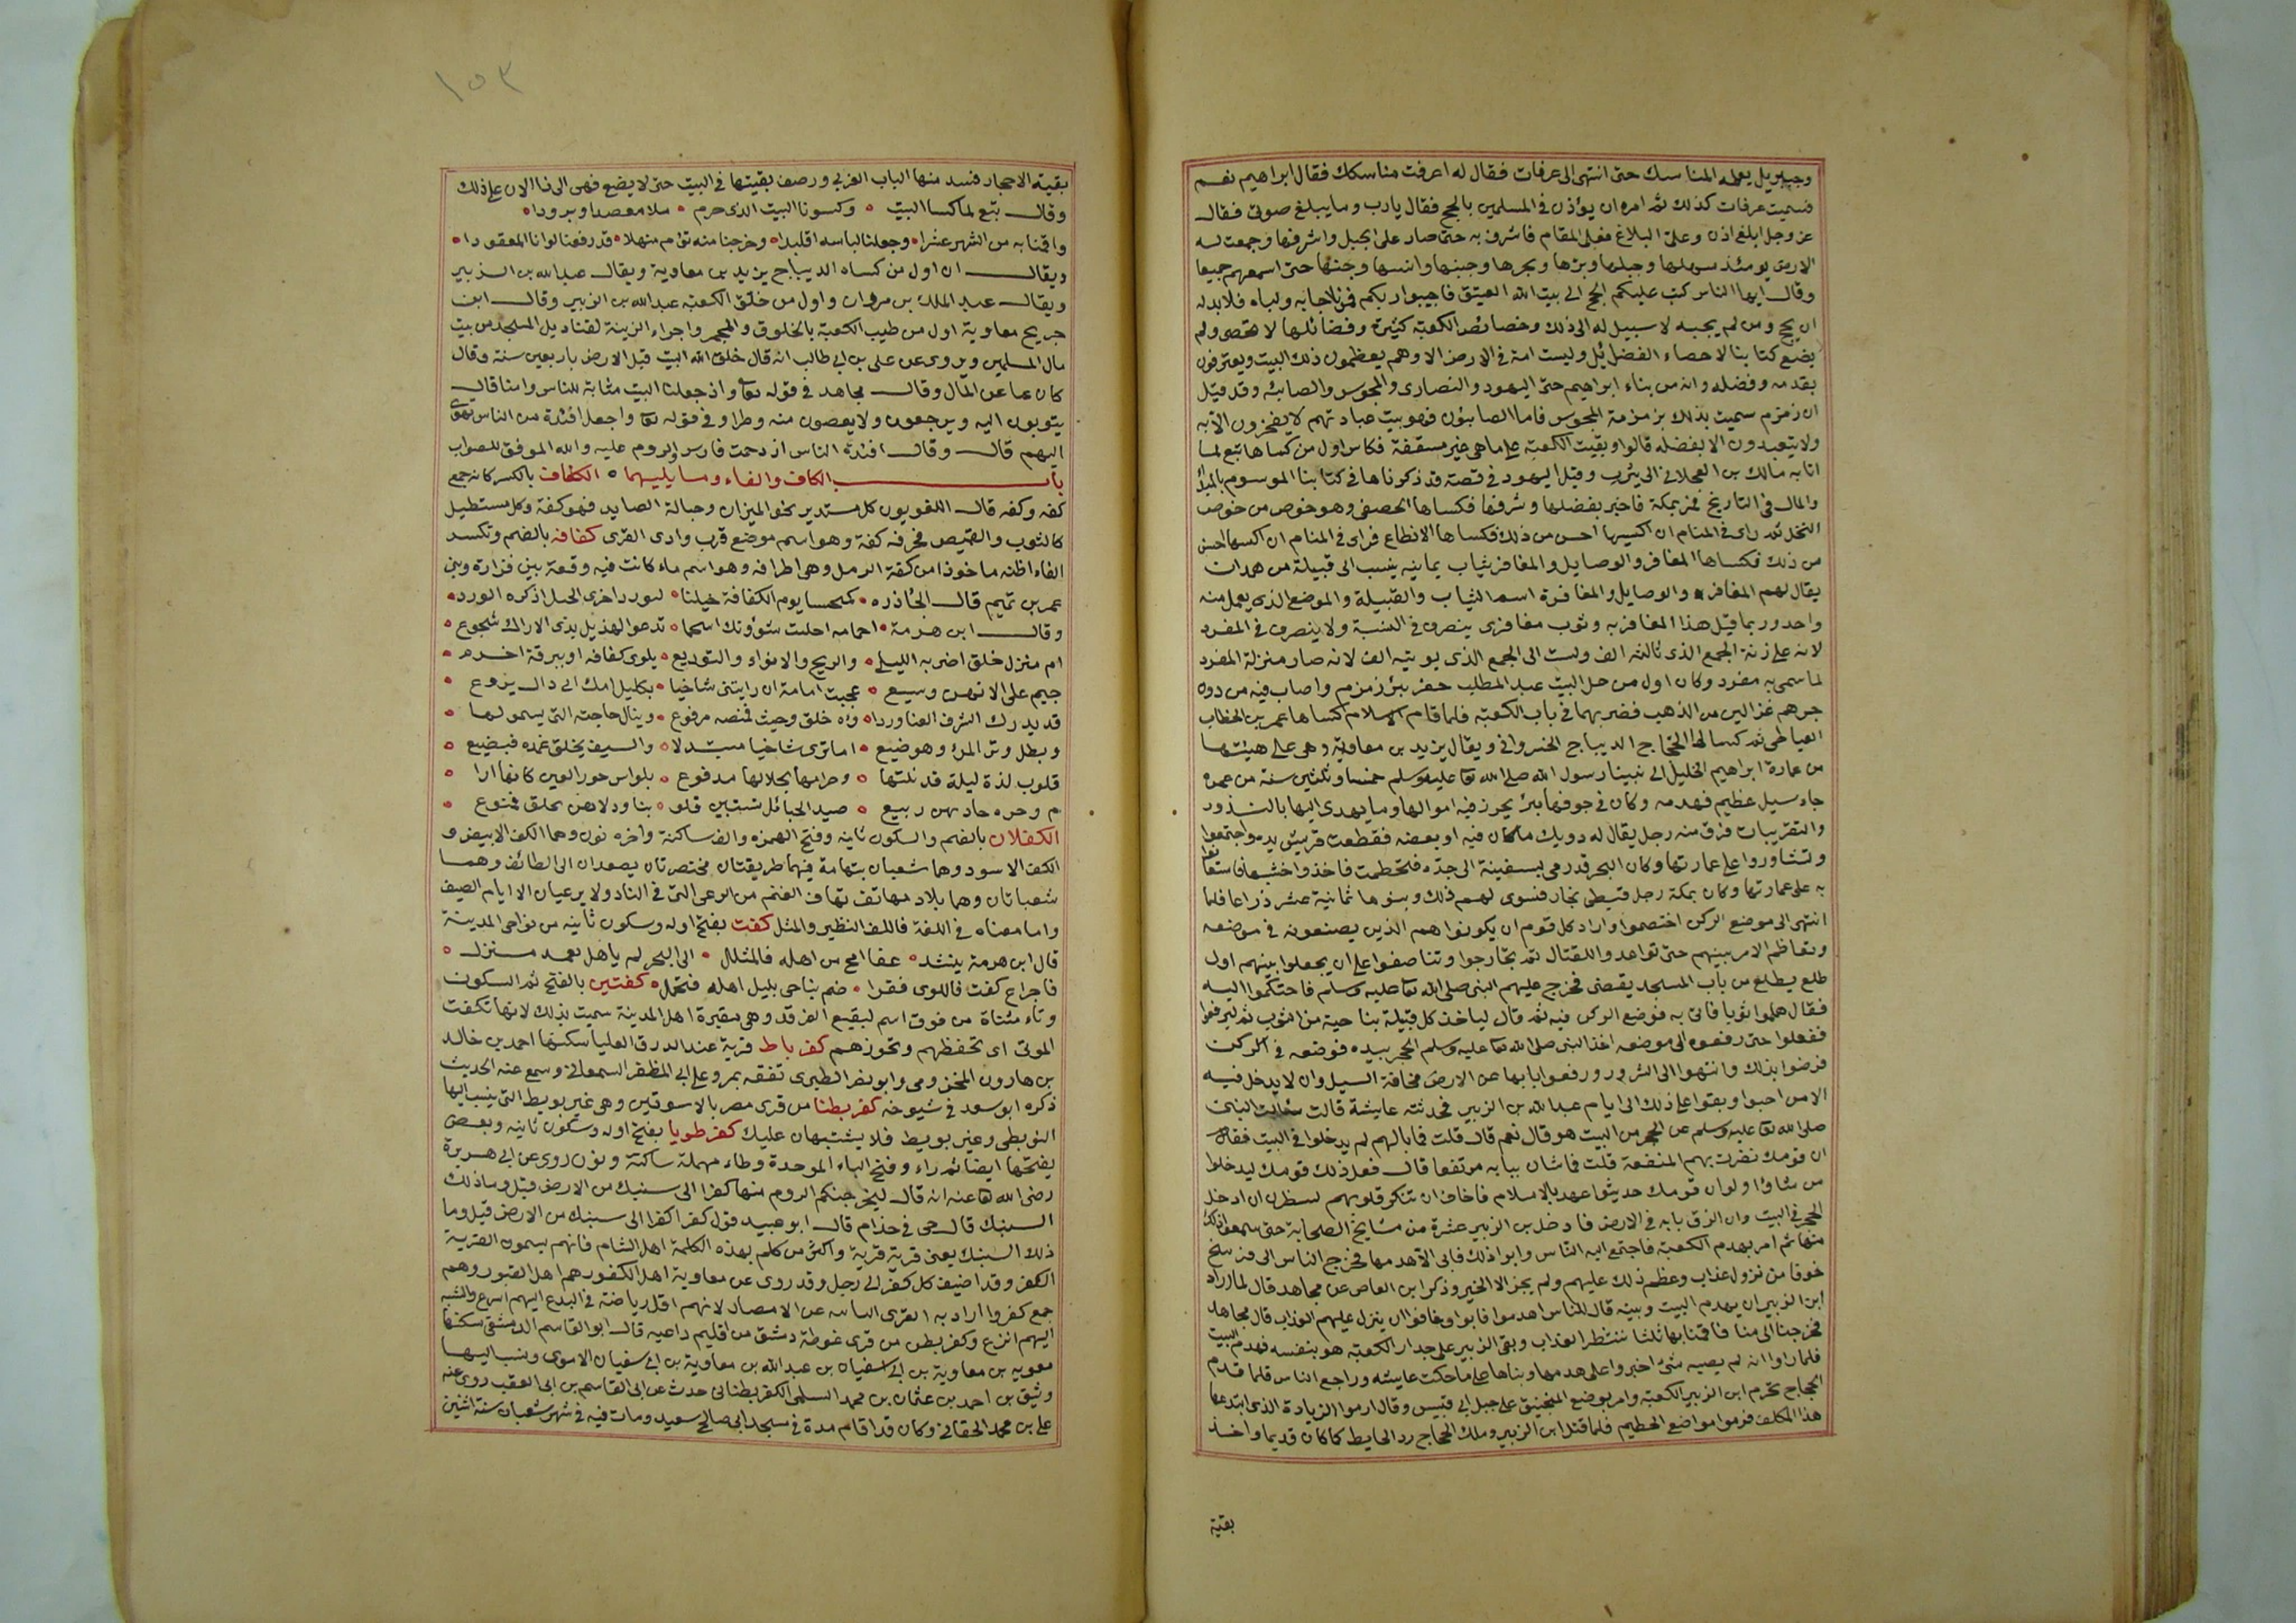 وجبريل يعمله المناسك حتى انتهى الى عرفات فقال له اعرفت مناسكك فقال ابراهيم نعم
فسميت عرفات كذلك ثم امره ان يؤذن في المسلمين بالحج فقال يارب وما يبلغ صوتي فقال
عز وجل ابلغ اذن وعلى البلاغ فعلى المقام فاشرف به حتى صار على الجبل واشرفها وجمعت له
الارض يومئذ سهلها وجبلها وبرها وبحرها وجنبها وانسها وجنها حتى اسمعهم جميعا
وقال ايها الناس كتب عليكم الحج الى بيت الله العتيق فاجيبوا ربكم فمن اجابه ولباه فلا بد له
ان يحج ومن لم يجبه لا سبيل له الى ذلك وخصائص الكعبة كثيرة وفضائلها لا تحصى ولم
يضع كتابنا لاحصاء الفضائل وليست امة في الارض الا وهم يعظمون ذلك البيت ويعترفون
بقدمه وفضله وانه من بناء ابراهيم حتى اليهود والنصارى والمجوس والصابئة وقد قيل
ان زمزم سميت بذلك بزمزمة المجوس فاما الصابئون فهو بيت عبادتهم لا يفخرون الا به
ولا يتعبدون الا بفضله قالوا وبقيت الكعبة على ما هي غير مسقفة فكان اول من كساها تبع لما
اتا به مالك بن العجلاني الى يثرب وقتل اليهود في قصة قد ذكرناها في كتابنا الموسوم بالمبدأ
والمال في التاريخ فمر بمكة فاخبر بفضلها وشرفها فكساها الخصف وهو خوص من خوص
النخل ثم راى في المنام ان اكسيها احسن من ذلك فكساها الانطاع فراى في المنام ان اكسها احسن
من ذلك فكساها المعافر والوصايل والمعافر ثياب يمانية ينسب الى قبيلة من همدان
يقال لهم المعافر والوصايل والمعافرة اسم الثياب والقبيلة والموضع الذي يعمل منه
واحد وربما قيل هذا المعافرية وثوب معافري ينصرف في النسبة ولا ينصرف في المفرد
لانه على زنة الجمع الذي ثالثه الف ولست الى الجمع الذي يوتيه الف لانه صار منزلة المفرد
لما سمي به مفرد وكان اول من حل البيت عبد المطلب حفر بئر زمزم واصاب فيه من دون
جرهم غزالين من الذهب فضربهما في باب الكعبة فلما قام الاسلام كساها عمر بن الخطاب
القباطي ثم كساها الحجاج الديباج الخسرواني ويقال يزيد بن معاوية وهي على هيئتها
من عمارة ابراهيم الخليل الى نبينا رسول الله صلى الله تعا عليه وسلم خمسا وثلثين سنة من عمره
جاء سيل عظيم فهدمه وكان في جوفها بئر يحرز فيه اموالها وما يهدى اليها بالنذور
والتقربات فسرق منه رجل يقال له دويك ما كان فيه او بعضه فقطعت قريش يده واجتمعوا
وتشاوروا على عمارتها وكان البحر قد رمى بسفينة الى جدة فتحطمت فاخذوا خشبها فاستعانوا
به على عمارتها وكان بمكة رجل قبطي نجار فسوى لهم ذلك وبنوها ثمانية عشر ذراعا فلما
انتهى الى موضع الركن اختصموا واراد كل قوم ان يكونوا هم الذين يصنعونه في موضعه
وتعاظم الامر بينهم حتى تواعدوا للقتال ثم تحاجزوا وتناصفوا على ان يجعلوا بينهم اول
طلع يطلع من باب المسجد يقضي فخرج عليهم النبي صلى الله تعا عليه وسلم فاحتكموا اليه
فقال هلموا ثوبا فاتى به فوضع الركن فيه ثم قال لياخذ كل قبيلة بناحية من الثوب ثم ليرفعوا
ففعلوا حتى رفعوه الى موضعه اخذ النبي صلى الله تعا عليه وسلم الحجر بيده فوضعه في الركن
فرضوا بذلك وانتهوا الى الشرور ورفعوا بابها عن الارض مخافة السيل وان لا يدخل فيه
الا من احبوا وبقوا على ذلك الى ايام عبد الله بن الزبير فحدثته عايشة قالت سئالت النبي
صلى الله تعا عليه وسلم عن الحجر من البيت هو قال نعم قال قلت فما بالهم لم يدخلوا في البيت فقال
ان قومك قصرت بهم المنفعة قلت فما شان بابه مرتفعا قال فعل ذلك قومك ليدخلوا
من شاؤا ولوان قومك حديثوا عهد بالاسلام فاخاف ان تنكر قلوبهم لنظرت ان ادخل
الحجر في البيت وان الزق بابه في الارض فادخل بن الزبير عشرة من مشايخ الصحابة حتى سمعوا ذلك
منها ثم امر بهدم الكعبة فاجتمع اليه الناس وابوا ذلك فابى الا هدمها فخرج الناس الى فرسخ
خوفا من نزول عذاب وعظم ذلك عليهم ولم يجر الا الخير وذكر ابن العاص عن مجاهد قال لما اراد
ابن الزبير ان يهدم البيت وبنيه قال للناس اهدموا فابوا وخافوا ان ينزل عليهم العذاب قال مجاهد
فخرجنا الى منا فاقمنا بها ثلثا ننتظر العذاب وبقى الزبير على جدار الكعبة هو بنفسه فهدم البيت
فلما راوا انه لم يصبه شئ اخبروا على هدمها وبناها على ما حكت عايشه وراجع الناس فلما قدم
الحجاج تحرم ابن الزبير الكعبة وامر بوضع المنجنيق على جبل ابي قبيس وقال ارموا الزيادة الذي ابتدعها
هذا المكلف فرموا مواضع الحطيم فلما قتل ابن الزبير وملك الحجاج رد الحايط كما كان قديما واخذ
بقية
١٥٣
بقية الاحجار فسد منها الباب الغربي ورصف بقيتها في البيت حتى لا يضع فهي الى نا الان على ذلك
وقال تبع لما كسا البيت وكسونا البيت الذي حرم ملا معصدا وبرودا
واقمنا به من الشهر عشرا وجعلنا لبابه اقليدا وخرجنا منه نؤم منهلا قد رفعنا لوانا المعقودا
ويقال ان اول من كساه الديباج يزيد بن معاوية ويقال عبد الله بن الزبير
ويقال عبد الملك بن مروان واول من خلق الكعبة عبد الله بن الزبير وقال ابن
جريج معاوية اول من طيب الكعبة بالخلوق والمجمر واجراء الزينة لقناديل المسجد من بيت
مال المسلمين ويروى عن على بن ابي طالب انه قال خلق الله البيت قبل الارض باربعين سنة وقال
كان عما عن المال وقال مجاهد في قوله تعا واذ جعلنا البيت مثابة للناس وامنا قال
يثوبون اليه ويرجعون ولا يعصون منه وطرا وفي قوله تعا واجعل افئدة من الناس تهوى
اليهم قال وقال افئدة الناس ازدحمت فارس والروم عليه والله الموفق للصواب
باب الكاف والفاء وما يليهما الكفاف بالكسر كانه جمع
كفه وكفه قال اللغويون كل مستدير نحو الميزان وحبالة الصايد فهو كفة وكل مستطيل
كالثوب والقميص فحرفه كفة وهو اسم موضع قرب وادى القرى كفافه بالضم وتكسد
الفاء اظنه ماخوذا من كفة الرمل وهي اطرافه وهو اسم ماء كانت فيه وقعة بين فزارة وبني
عمر بن تميم قال الحاذره كمحسا يوم الكفافة خيلنا لورد اخرى الخيل اذ كره الورد
وقال ابن هرمة احمامه احلبت شؤونك اسجما تدعو الهذيل بذى الاراك شجوع
ام منزل خلق اضر به البلى والريح والانواء والتوديع بلوى كفافه او ببرقة اخرم
جيم على الا وسيع عجبت امامة ان رايتنى شاخيا بكليل امك اى ذاك يروع
قد يدرك الشرف الفتا ورداوه خلق وجيب قميصه مرفوع وينال حاجته التى يسمولها
ويطل وتر المرء وهو ضيع اما ترى شاخيا مبتدلا والسيف يخلق غمده فيضيع
قلوب لذة ليلة قد نلتها وحرامها بحلالها مدفوع بلواس حور العين كانها ارا
م وحره حادبهن ربيع صيد الحبائل نتبين قلو بنا ودلاهن بحلق ممنوع
الكفلان بالضم والسكون ثاينه وفتح الهمزه والف ساكنة واخره نون وهما الكف الابيض و
الكف الاسود وهما شعبان بتهامة فيهما طريقتان مختصرتان يصعدان الى الطائف وهما
شعبا ثان وهما بلاد مهائف تهاف الغنم من الرعى التى في الناد ولا يرعيان الا ايام الصيف
واما معناه في اللغة فالكف النظير والمثل كفت بفتح اوله وسكون ثاينه من نواحى المدينة
قال ابن هرمة ينشد عفا امج من اهله فالمثلل الى البحر لم ياهل بعد منزل
فاجراح كفت فاللوى فقرا ضم بناحى بليل اهله فتحمل كفتين بالفتح ثم السكون
وتاء مثناة من فوق اسم لبقيع الغرقد وهي مقبرة اهل المدينة سميت بذلك لانها تكفت
الموتى اى تحفظهم وتحوزهم كفر باط قرية عند الدرق العليا سكنها احمد بن خالد
بن هارون المخزومى وابو نفر الطبرى تفقه بمرو على ابى المظفر السمعاني وسمع عنه الحديث
ذكره ابو سعد في شيوخه كفر بطنا من قرى مصر بالاسوقين وهي غير بويط التى ينسب اليها
البويطى وغير بويط فلا يشتبهان عليك كفر طويا بفتح اوله وسكون ثانيه وبعض
يفتحها ايضا ثم راء وفتح الباء الموحدة وطاء مهملة ساكنة ونون روى عن ابى هريرة
رضى الله تعا عنه انه قال ليخرجنكم الروم منها كفرا كفرا الى سنبك من الارض قيل وما ذلك
السنبك قال حى في جذام قال ابو عبيد قول كفرا كفرا الى سنبك من الارض قيل وما
ذلك السنبك يعنى قرية قرية واكثر من كلم بهذه الكلمة اهل الشام فانهم يسمون القرية
الكفر وقد اضيف كل كفر الى رجل وقد روى عن معاوية اهل الكفور هم اهل القبور وهم
جمع كفر واراد به القرى النائية عن الامصار لانهم اقل رياضة في البدع اليهم اسرع والشبه
اليهم انزع وكفر بطن من قرى غوطة دمشق من اقليم داعيه قال ابو القاسم الدمشقى سكنها
معويه بن معاوية بن ابى سفيان بن عبد الله بن معاوية بن ابى سفيان الاموى وينسب اليها
وثيق بن احمد بن عثمان بن محمد السلمى الكفر بطنانى حدث عن ابى القاسم بن ابى العقب روى عنه
على بن محمد الحقانى وكان قد اقام مدة في مسجد ابى صالح سعيد ومات فيه في شهر شعبان سنة اثنين